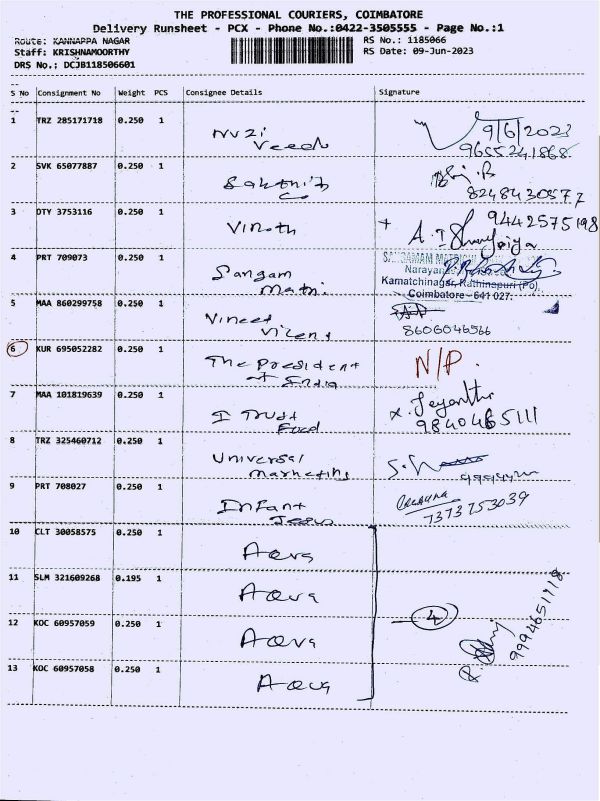 THE PROFESSIONAL COURIERS, COIMBATORE
Delivery Runsheet - PCX - Phone No.:0422-3505555 - Page No.:1
Route: KANNAPPA NAGAR RS No.: 1185066
Staff: KRISHNAMOORTHY RS Date: 09-Jun-2023
DRS No.; DCJB118506601
S No Consignment No Weight PCS Consignee Details Signature
1 TRZ 285171718 0.250 1 9/6/2023
Veedu 9655241868
2 SVK 65077887 0.250 1
Co 8248430577
3 DTY 3753116 0.250 1 Vinoth 9442575198
4 PRT 709073 0.250 1 Sangam
Matri.
Kamatchinagar, Kathirnapuri (Po),
Coimbatore - 641 027.
5 MAA 860299758 0.250 1 Vineet
8606046566
6 KUR 695052282 0.250 1 The President N/P.
of India
7 MAA 101819639 0.250 1 I Trust x. Jeyanthi
Food 9840465111
8 TRZ 325460712 0.250 1 Universal
Marketing
9 PRT 708027 0.250 1 Infant
Jesus 7373753039
10 CLT 30058575 0.250 1 Aqva
11 SLM 321609268 0.195 1 Aqva
12 KOC 60957059 0.250 1 Aqva 4
13 KOC 60957058 0.250 1 Aqva 9994651718